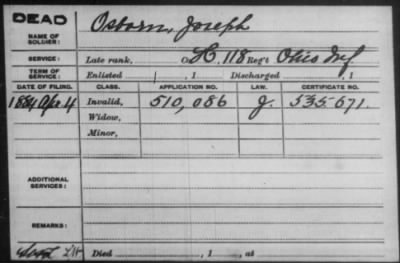 DEAD
NAME OF SOLDIER: Osborn, Joseph
SERVICE: Late rank, Co H, 118 Reg't Ohio Inf
TERM OF SERVICE: Enlisted , 1 Discharged , 1
DATE OF FILING. CLASS. APPLICATION NO. LAW. CERTIFICATE NO.
1884 Apr 4 Invalid, 510,086 J. 535.671.
Widow,
Minor,
ADDITIONAL SERVICES:
REMARKS:
Died , 1 , at